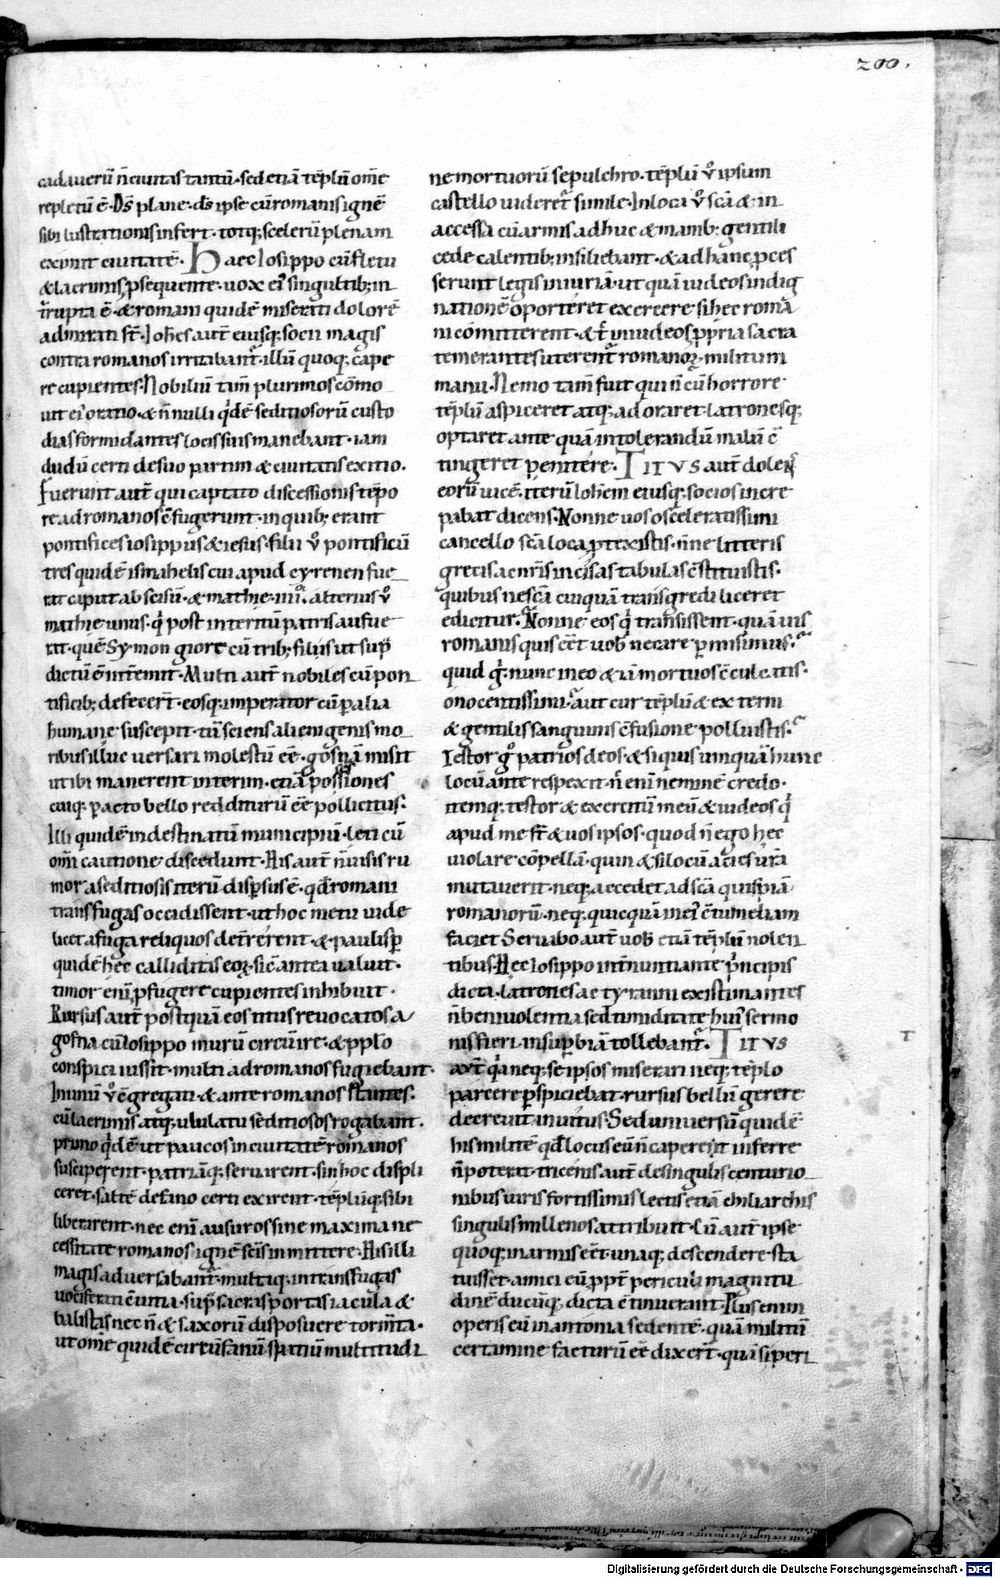 200.
cadaueru᷒ n̄ ciuitas tantū· sed etiā tēplū om̄e
repletū ē· Ds̄ plane· ds̄ ipse cū romanis ignē
sibi lustrationis infert· totq; scelerū plenam
exurit ciuitatē· Haec Iosippo cū fletu
& lacrimis ꝓsequente· uox ei' singultib; in
t̄rupta ē· & romani quidē miserati dolorē
admirati st̄· Ioh̄es aut̄ eiusq; socii magis
contra romanos irritabant̄· illū quoq; cape
re cupientes· Nobiliū tam̄ plurimos cōmo
uit ei' oratio· & n̄nulli q'dē seditiosorū custo
dias formidantes locis suis manebant· iam
dudū certi de suo partim & ciuitatis exitio·
Fuerunt aut̄ qui captato discessionis tēpo
re ad romanos c̄fugerunt· in quib; erant
pontifices iosippus & iesus· filii ū pontificū
tres quidē ismahelis cui apud cyrenen fue
rat caput abscisū· & mathie· iiii· alterius ū
mathie unus· q' post interitū patris aufue
rat· quē Symon giore cū trib; filiis ut sup̄
dictū ē int̄emit· Multi aut̄ nobiles cū pon
tificib; defecer̄t· eosq; imperator cū p alia
humane suscepit· tū sciens alienigenis mo
ribus illuc uersari molestū eē· gofnā misit
ut ibi manerent interim· etiā possiones
cuiq; pacto bello redditurū eē pollicitus·
Illi quidē in destinatū municipiū· leti cū
om̄i cautione discedunt· His aut̄ n̄ uisis ru
mor a seditiosis iterū dispersus ē· qd romani
transfugas occidissent· ut hoc metu uide
licet a fuga reliquos det̄rerent· & paulisp
quidē hec calliditas eoꝝ sic antea ualuit·
timor eni ꝓfugere cupientes inhibuit·
Rursus aut̄ postquā eos titus reuocatos a
gofna cū Iosippo murū circūire· & pplo
conspici iussit· multi ad romanos fugiebant·
In unū ū c̄gregati· & ante romanos stantes·
cū lacrimis atq; ululatu seditiosos rogabant·
primo q'dē ut paucos in ciuitatē romanos
susciperent· patriāq; seruarent· sin hoc displi
ceret· saltē de fano certi exirent· tēplūq; sibi
liberarent· nec eni ausuros sine maxima ne
cessitate romanos ignē scis inmittere· His illi
magis aduersabant̄· multiq; in transfugas
uociferati c̄uitia· sup̄ sacras portas iacula &
balistas nec n̄ & saxorū disposuere torm̄ta·
ut om̄e quidē circū fanū spatiū multitudi
ne mortuorū sepulchro· tēplū ū ipsum
castello uideret̄ simile· In loca ū scā & in
accessa cū armis adhuc & manib; gentili
cede calentib; insiliebant· & ad hanc pces
serunt legis iniuriā· ut quā iudeos indig
nationē oporteret exercere si hec roma
ni cōmitterent· & t̄ in iudeos ppria sacra
temerantes uterent̄ romanoꝝ· militum
manu· Nemo tam̄ fuit qui n̄ cū horrore
tēplū aspiceret atq; adoraret· latronesq;
optaret ante quā intolerandū malū c̄
tingeret penitere· TITVS aut̄ dolens
eorū uicē· iterū Ioh̄em eiusq; socios incre
pabat dicens· Nonne uos o sceleratissimi
cancello scā loca ptexistis· n̄ne litteris
grecis ac nr̄is incisas tabulas c̄stituistis·
quibus nescā cuiquā transgredi liceret
edicitur· Nonne eos q' transissent· quāuis
romanis quis eēt uob necare pmisimus·
quid g' nunc in eo & iā mortuos c̄culcatis·
o nocentissimi· aut cur tēplū & externi
& gentilis sanguinis c̄fusione polluistis·
Testor g° patrios deos· & siquis unquā hunc
locū ante respexit· n̄ enī neminē credo·
itemq; testor & exercitū meū & iudeos q'
apud me st̄ & uos ipsos· quod n̄ ego hec
uiolare cōpellā· quin & si locū acies ur̄a
mutauerit· neq; accedet ad scā quispiā
romanorū· neq; quicquā mei' c̄tumeliam
faciet· Seruabo aut̄ uob etiā tēplū nolen
tibus· Hec Iosippo int̄nuntiante p'ncipis
dicta· latrones ac tyranni existimantes
n̄ beniuolentia sed timiditate hui' sermo
nis fieri· in supbiā tollebant̄· TITVS
aut̄ q'a neq; se ipsos miserari neq; tēplo
parcere pspiciebat· rursus bellū gerere
decreuit inuitus· Sed uniuersū quidē
his militē qd locus eū n̄ caperet inferre
n̄ poterat· tricenis aut̄ de singulis centurio
nibus uiris fortissimis lectis etiā chiliarchis
singulis millenos attribuit· Cū aut̄ ipse
quoq; in armis eēt· unaq; descendere sta
tuisset· amici eū ppt̄ periculi magnitu
dinē ducūq; dicta c̄tinuerant· Plus enim
operis eū in antonia sedentē· quā militū
certamine facturū eē dixer̄t· quasi peri
T
Digitalisierung gefördert durch die Deutsche Forschungsgemeinschaft - DFG